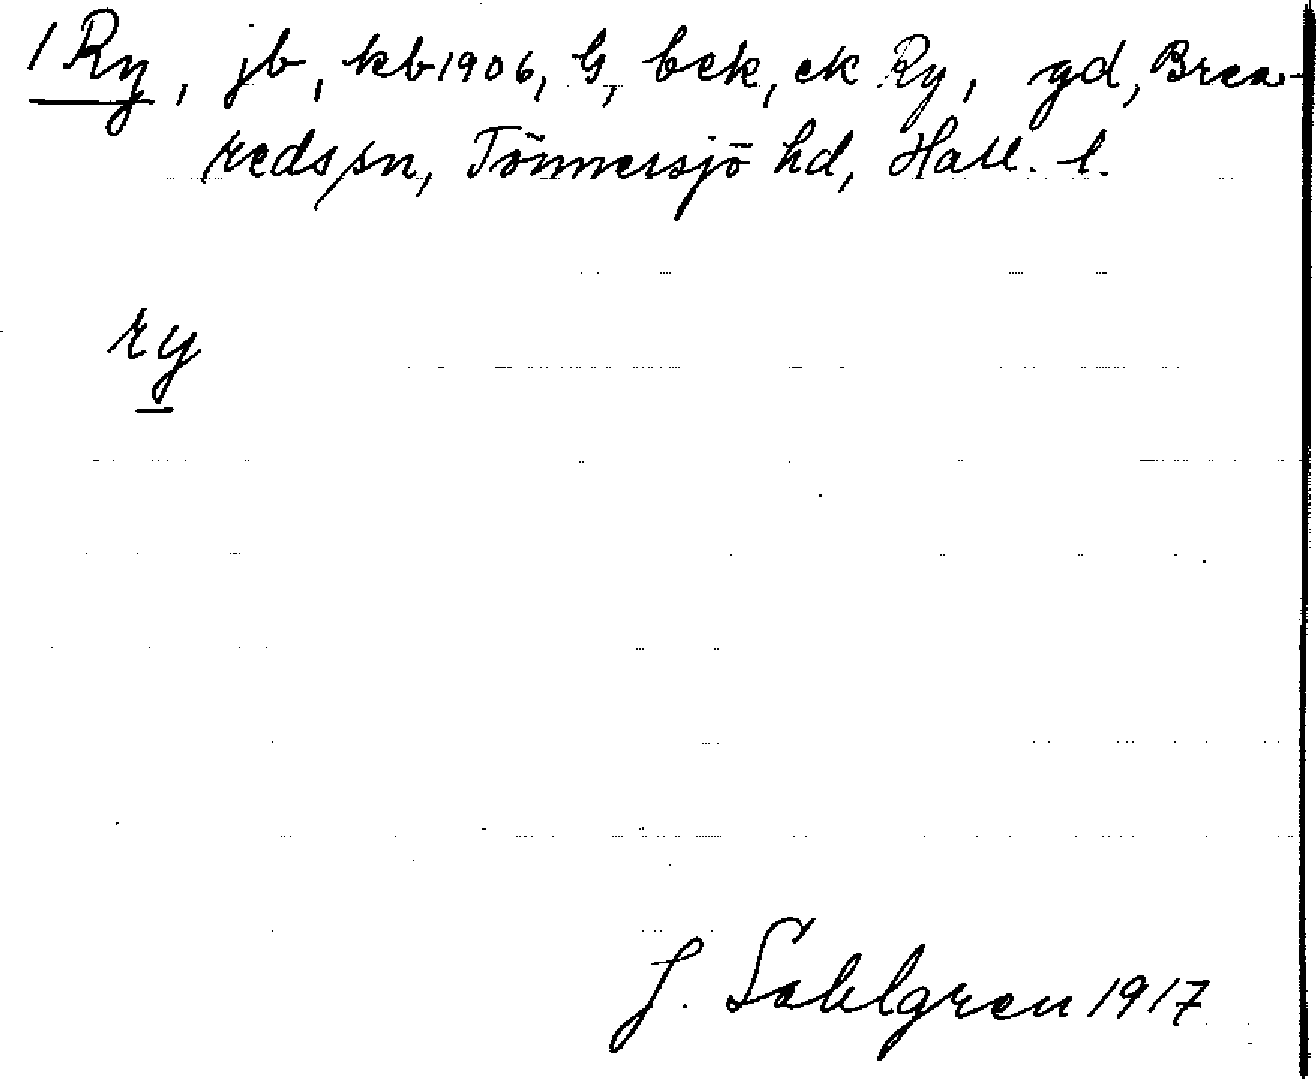 1 Ry, jb, kb 1906, G, bek, ek Ry, gd, Brea-
reds sn, Tönnersjö hd, Hall. l.
ry
J. Sahlgren 1917